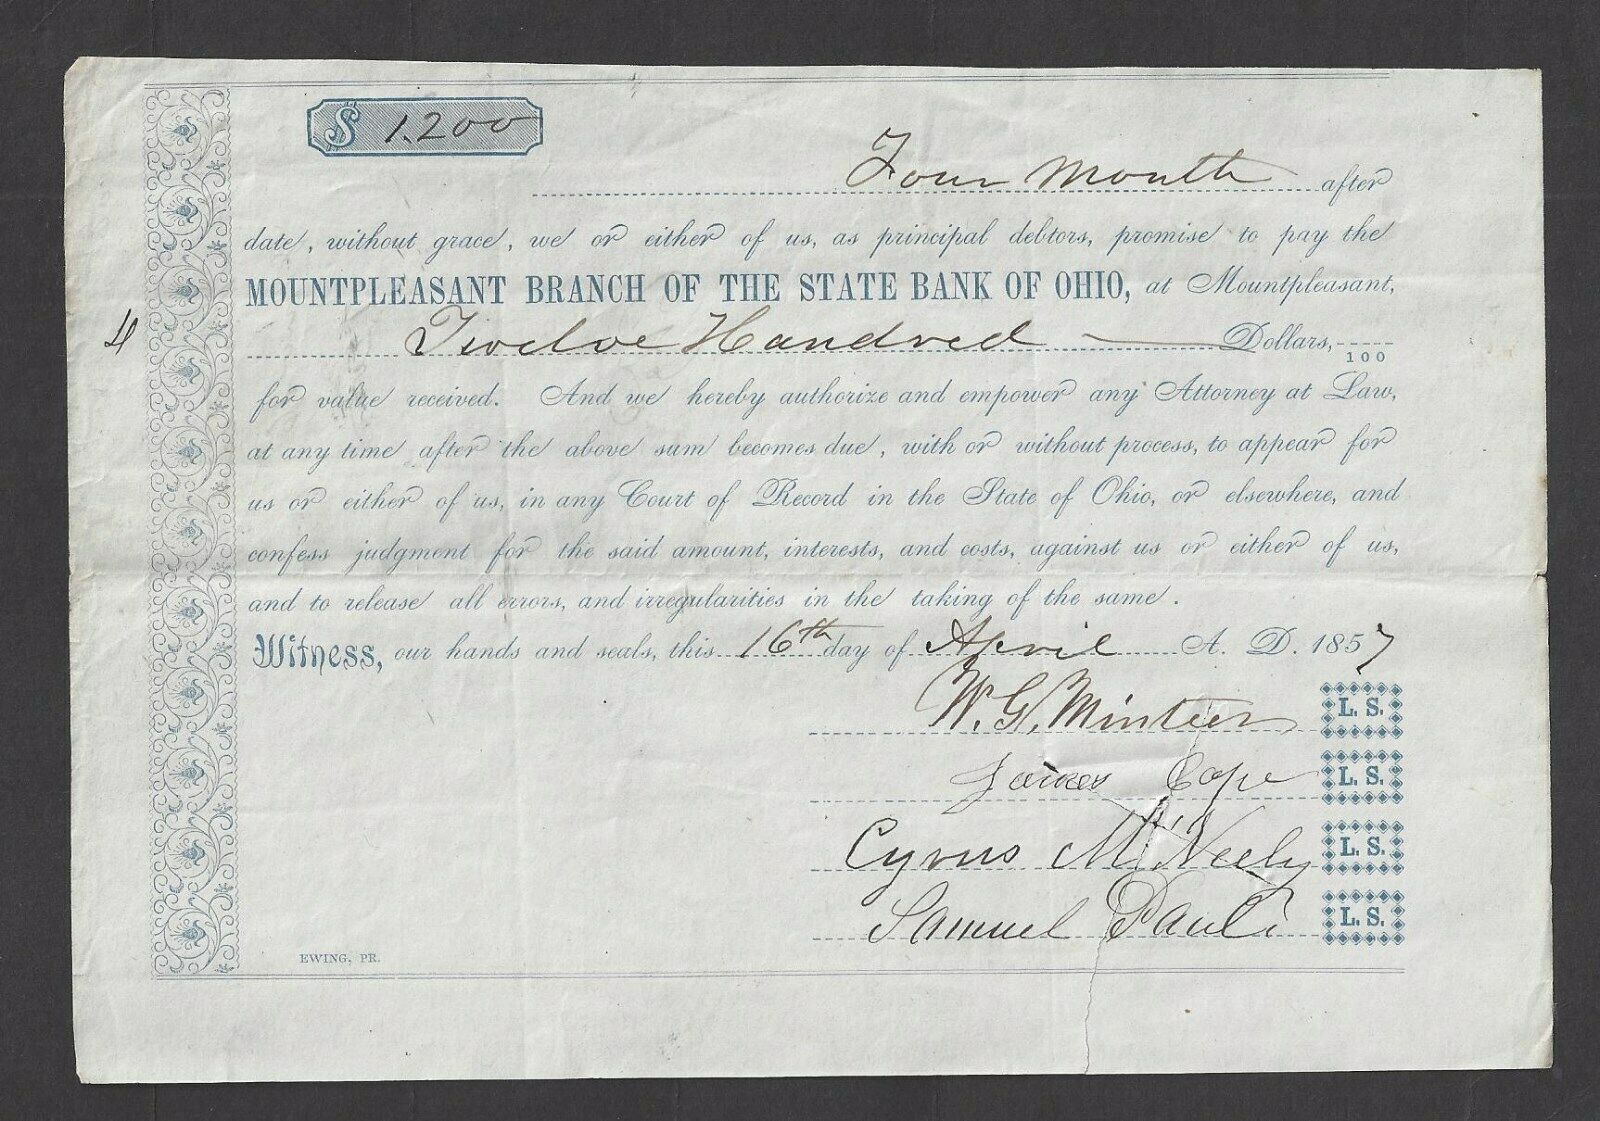 $ 1.200
Four Month after
date, without grace, we or either of us, as principal debtors, promise to pay the
MOUNTPLEASANT BRANCH OF THE STATE BANK OF OHIO, at Mountpleasant,
Twelve Hundred Dollars, 100
for value received. And we hereby authorize and empower any Attorney at Law,
at any time after the above sum becomes due, with or without process, to appear for
us or either of us, in any Court of Record in the State of Ohio, or elsewhere, and
confess judgment for the said amount, interests, and costs, against us or either of us,
and to release all errors, and irregularities in the taking of the same.
Witness, our hands and seals, this 16th day of April A. D. 1857
W. G. Minteer L. S.
James Cope L. S.
Cyrus McNeely L. S.
Samuel L. S.
EWING, PR.